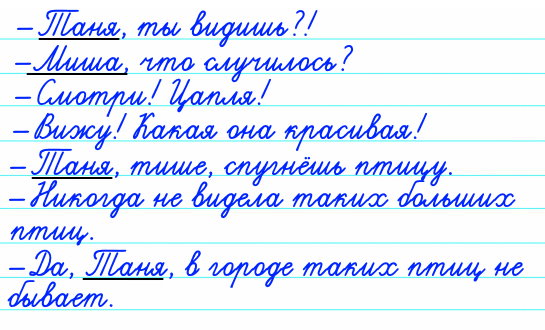 – Таня, ты видишь?!
– Миша, что случилось?
– Смотри! Цапля!
– Вижу! Какая она красивая!
– Таня, тише, спугнёшь птицу.
– Никогда не видела таких больших
птиц.
– Да, Таня, в городе таких птиц не
бывает.